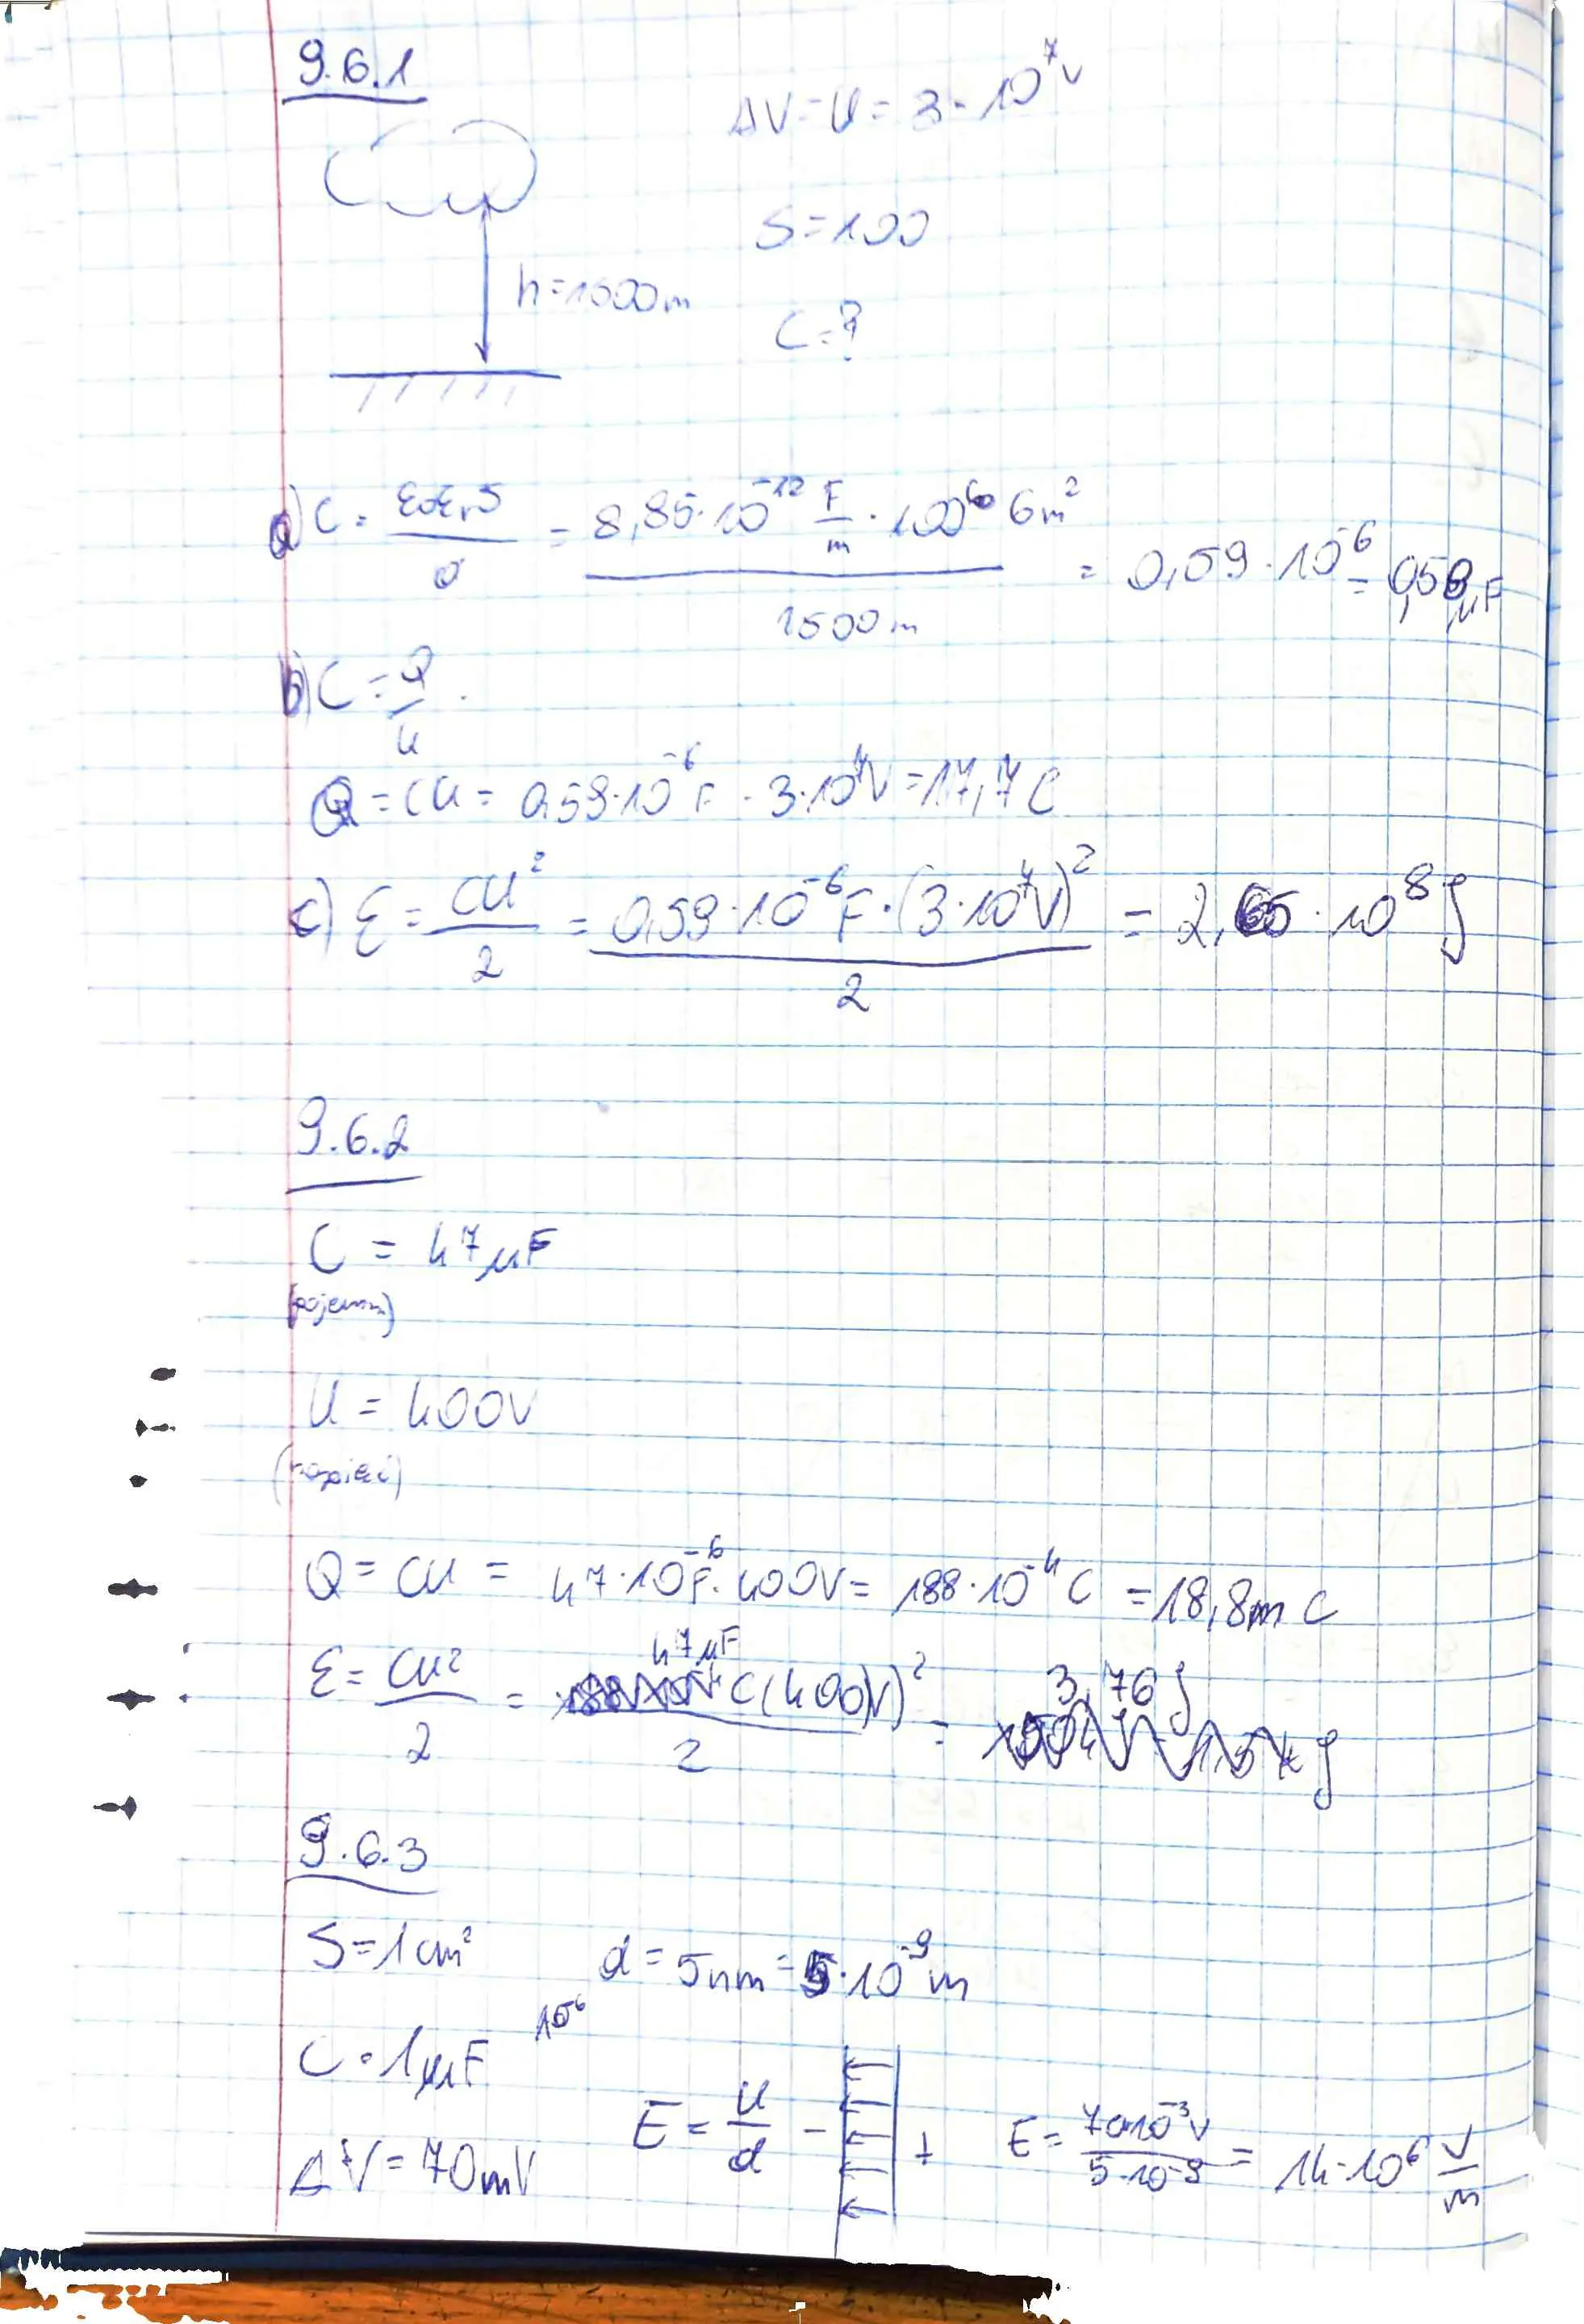 9.6.1
ΔV = U = 3 · 10⁷ V
S = 100
h = 1500 m
C = ?
a) C = ε₀εᵣS / d = 8,85 · 10⁻¹² F/m · 100 · 10⁶ m² / 1500 m = 0,59 · 10⁻⁶ = 0,59 μF
b) C = Q / U
Q = CU = 0,59 · 10⁻⁶ F · 3 · 10⁷ V = 17,7 C
c) ε = CU² / 2 = 0,59 · 10⁻⁶ F · (3 · 10⁷ V)² / 2 = 2,65 · 10⁸ J
9.6.2
C = 47 μF
U = 400 V
Q = CU = 47 · 10⁻⁶ F · 400 V = 188 · 10⁻⁴ C = 18,8 m C
ε = CU² / 2 = 47 μF (400 V)² / 2 = 3,76 J
9.6.3
S = 1 cm²
d = 5 nm = 5 · 10⁻⁹ m
10⁻⁶
C = 1 μF
E = U / d
- +
E = 70 · 10⁻³ V / 5 · 10⁻⁹ = 14 · 10⁶ V/m
ΔV = 70 mV